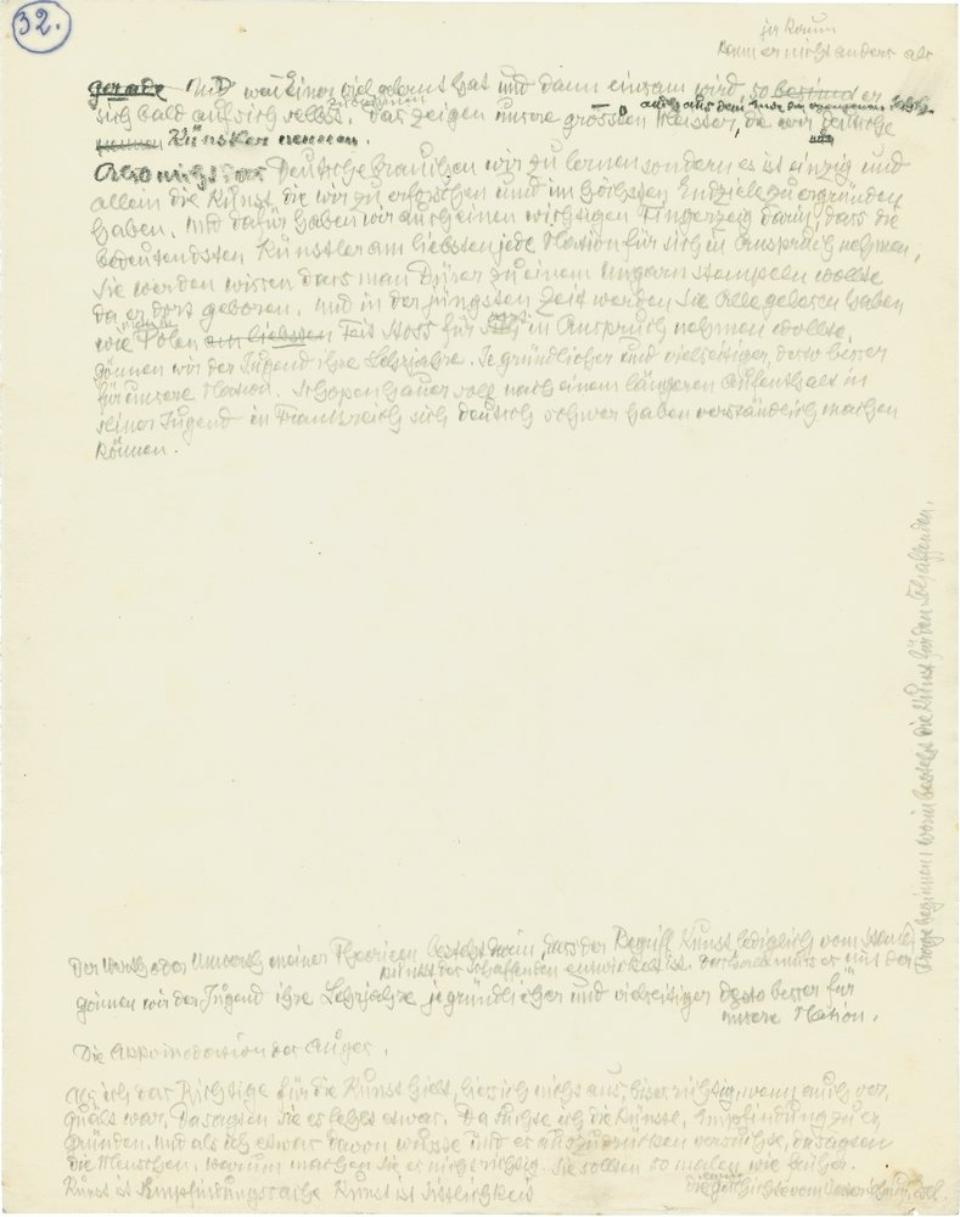 32.
ja kaum
kann er nicht anders als
gerade Und wenn Einer viel gelernt hat und dann einsam wird, so besinnt er
sich bald auf sich selbst. Das zeigen unsere grössten Meister, die wir deutsche
zu besinnen auch aus dem
nennen Künstler nennen.
Also nicht das Deutsche brauchen wir zu lernen sondern es ist einzig und
allein die Kunst, die wir zu erforschen und im höchsten Endziele zu ergründen
haben. Und dafür haben wir auch einen wichtigen Fingerzeig darin, dass die
bedeutendsten Künstler am liebsten jede Nation für sich in Anspruch nehmen,
Sie werden wissen dass man Dürer zu einem Ungarn stempeln wollte
da er dort geboren. Und in der jüngsten Zeit werden Sie Alle gelesen haben
wie Polen am liebsten Feit Stoss für sich in Anspruch nehmen wollte.
gönnen wir der Jugend ihre Lehrjahre. Je gründlicher und vielseitiger, desto besser
für unsere Nation. Schopenhauer soll nach einem längeren Aufenthalt in
seiner Jugend in Frankreich sich deutsch schwer haben verständlich machen
können.
Frage beginnen: worin besteht die Kunst für den Schaffenden.
Der Werth oder Unwerth meiner Theorieen besteht darin, dass der Begriff Kunst lediglich vom
des Schaffenden entwickelt ist. muss er mit der
gönnen wir der Jugend ihre Lehrjahre je gründlicher und vielseitiger desto besser für
unsere Nation.
Die Accomodation des Auges.
Als ich das Richtige für die Kunst hielt, liess ich nichts aus, bis es richtig, wenn auch ver
quält war. Da sagten Sie es fehlt etwas. Da suchte ich die Künste, Empfindung zu er
gründen. und als ich etwas davon wusste und es auszudrücken versuchte, da sagten
die Menschen, warum machen Sie es nicht richtig. Sie sollten so malen wie früher.
Kunst ist Empfindungssache Kunst ist Sittlichkeit
die Geschichte vom